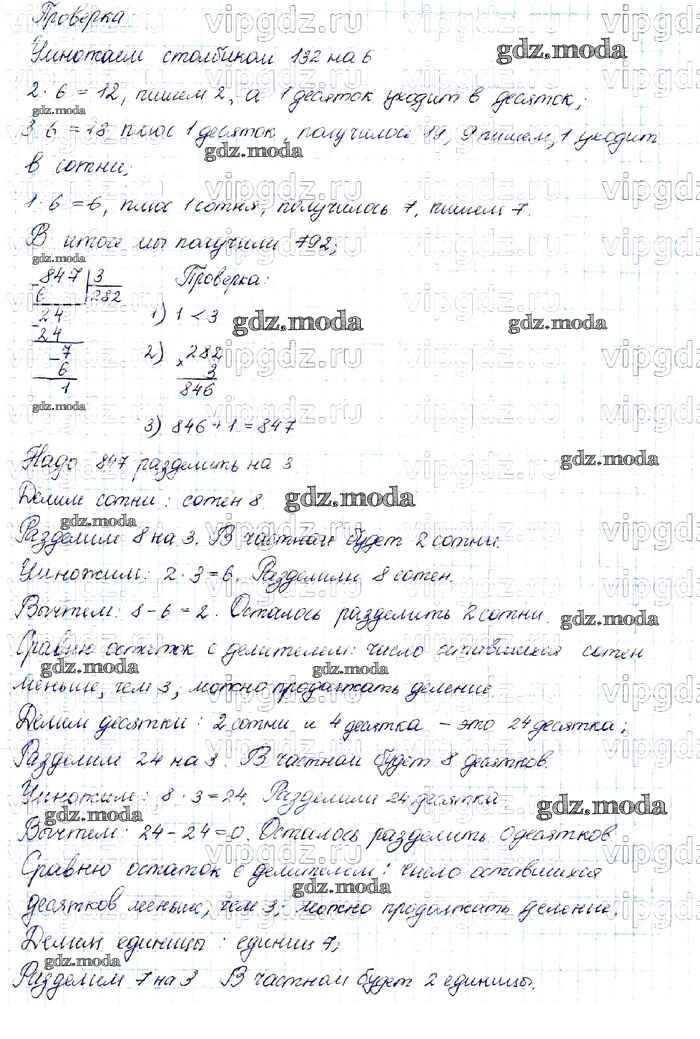 Проверка
Умножаем столбиком 132 на 6
2 · 6 = 12, пишем 2, а 1 десяток уходит в десяток;
3 · 6 = 18 плюс 1 десяток, получилось 19, 9 пишем, 1 уходит
в сотни;
1 · 6 = 6, плюс 1 сотня, получилось 7, пишем 7.
В итоге мы получили 792;
847 3
6 282
24
24
7
6
1
Проверка:
1) 1 < 3
2) × 282
3
846
3) 846 + 1 = 847
Надо 847 разделить на 3
Делим сотни: сотен 8
Разделим 8 на 3. В частном будет 2 сотни.
Умножим: 2 · 3 = 6. Разделили 8 сотен.
Вычтем: 8 - 6 = 2. Осталось разделить 2 сотни.
Сравню остаток с делителем: число оставшихся сотен
меньше, чем 3, можно продолжать деление.
Делим десятки: 2 сотни и 4 десятка – это 24 десятка;
Разделим 24 на 3. В частном будет 8 десятков.
Умножим: 8 · 3 = 24. Разделили 24 десятка.
Вычтем: 24 - 24 = 0. Осталось разделить 0 десятков.
Сравню остаток с делителем: число оставшихся
десятков меньше, чем 3, можно продолжать деление.
Делим единицы: единиц 7;
Разделим 7 на 3 В частном будет 2 единицы.
vipgdz.ru
gdz.moda